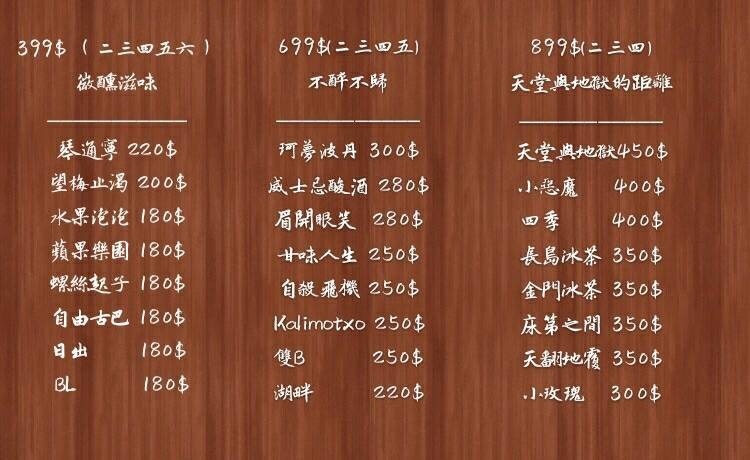 399$ (二三四五六)
微醺滋味
琴通寧 220$
望梅止渴 200$
水果泡泡 180$
蘋果樂園 180$
螺絲起子 180$
自由古巴 180$
日出 180$
BL 180$
699$(二三四五)
不醉不歸
珂夢波丹 300$
威士忌酸酒 280$
眉開眼笑 280$
甘味人生 250$
自殺飛機 250$
Kalimotxo 250$
雙B 250$
湖畔 220$
899$(二三四)
天堂與地獄的距離
天堂與地獄450$
小惡魔 400$
四季 400$
長島冰茶 350$
金門冰茶 350$
床第之間 350$
天翻地覆 350$
小玫瑰 300$